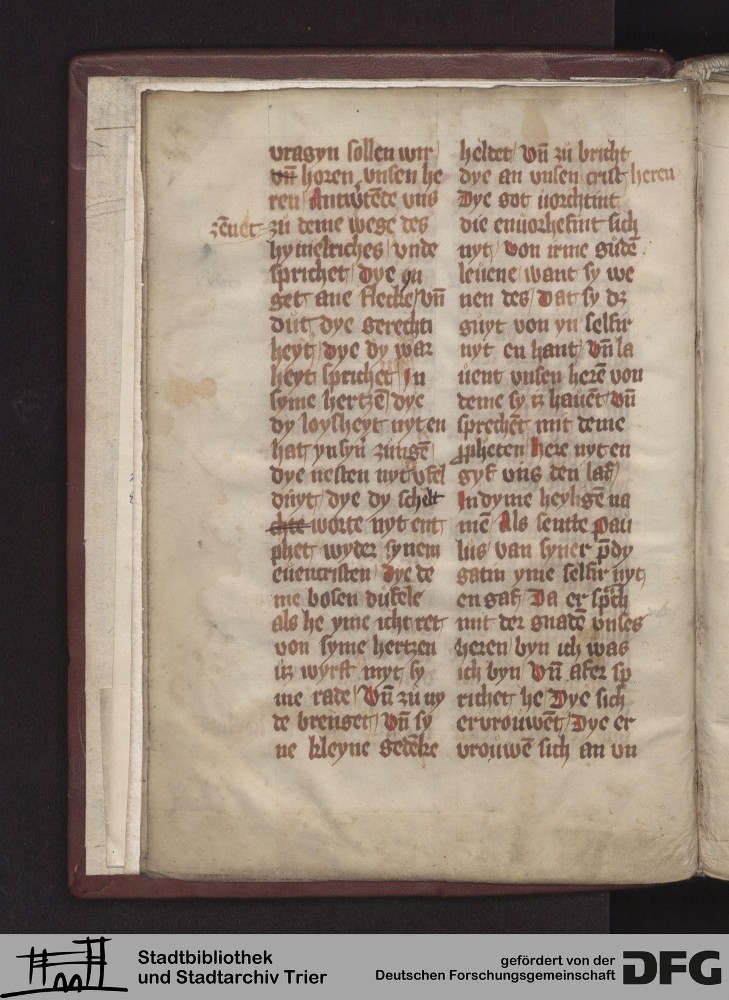 vragyn sollen wir
vn̄ horen vnsen he
ren Antwͦtēde vns
zēuet zu deme wege des
hymelriches / vnde
sprichet / dye gu
get ane flecke / vn̄
dut dye gerechti
heyt / dye dy war
heyt sprichet / In
syme hertzē / dye
dy loysheyt nyt en
hat yn syn̄ zungē
dye nesten nyt vbel
duyt / dye dy schelt
chte worte nyt ent
phet wyder synem
euencristen / dye de
me bosen dufele
als he yme icht ret
von syme hertzen
uz wyrft myt sy
me rade / Vn̄ zu ny
de brenget / Vn̄ sy
ne kleyne gedēke
heldet / Vn̄ zu bricht
dye an vnsen crist heren
Dye got vorchtint
die enuorhefint sich
nyt / von irme gudē
leuene / want sy we
nen des / Dat sy dz
guyt von yn selfir
nyt en hant / Vn̄ la
uent vnsen herē von
deme sy iz hauēt / Vn̄
sprechēt mit deme
ppheten / Here nyt en
gyf vns den laf /
In dyme heyligē na
mē / Als sente pau
lus van syner p̄dy
gatin yme selfir nyt
en gaf / Da er sp̄ch
mit der gnadē vnses
heren byn ich was
ich byn / Vn̄ afer sp
richet he / Dye sich
ervrouwēt / Dye er
vrouwē sich an vn
Stadtbibliothek
und Stadtarchiv Trier
gefördert von der
Deutschen Forschungsgemeinschaft
DFG